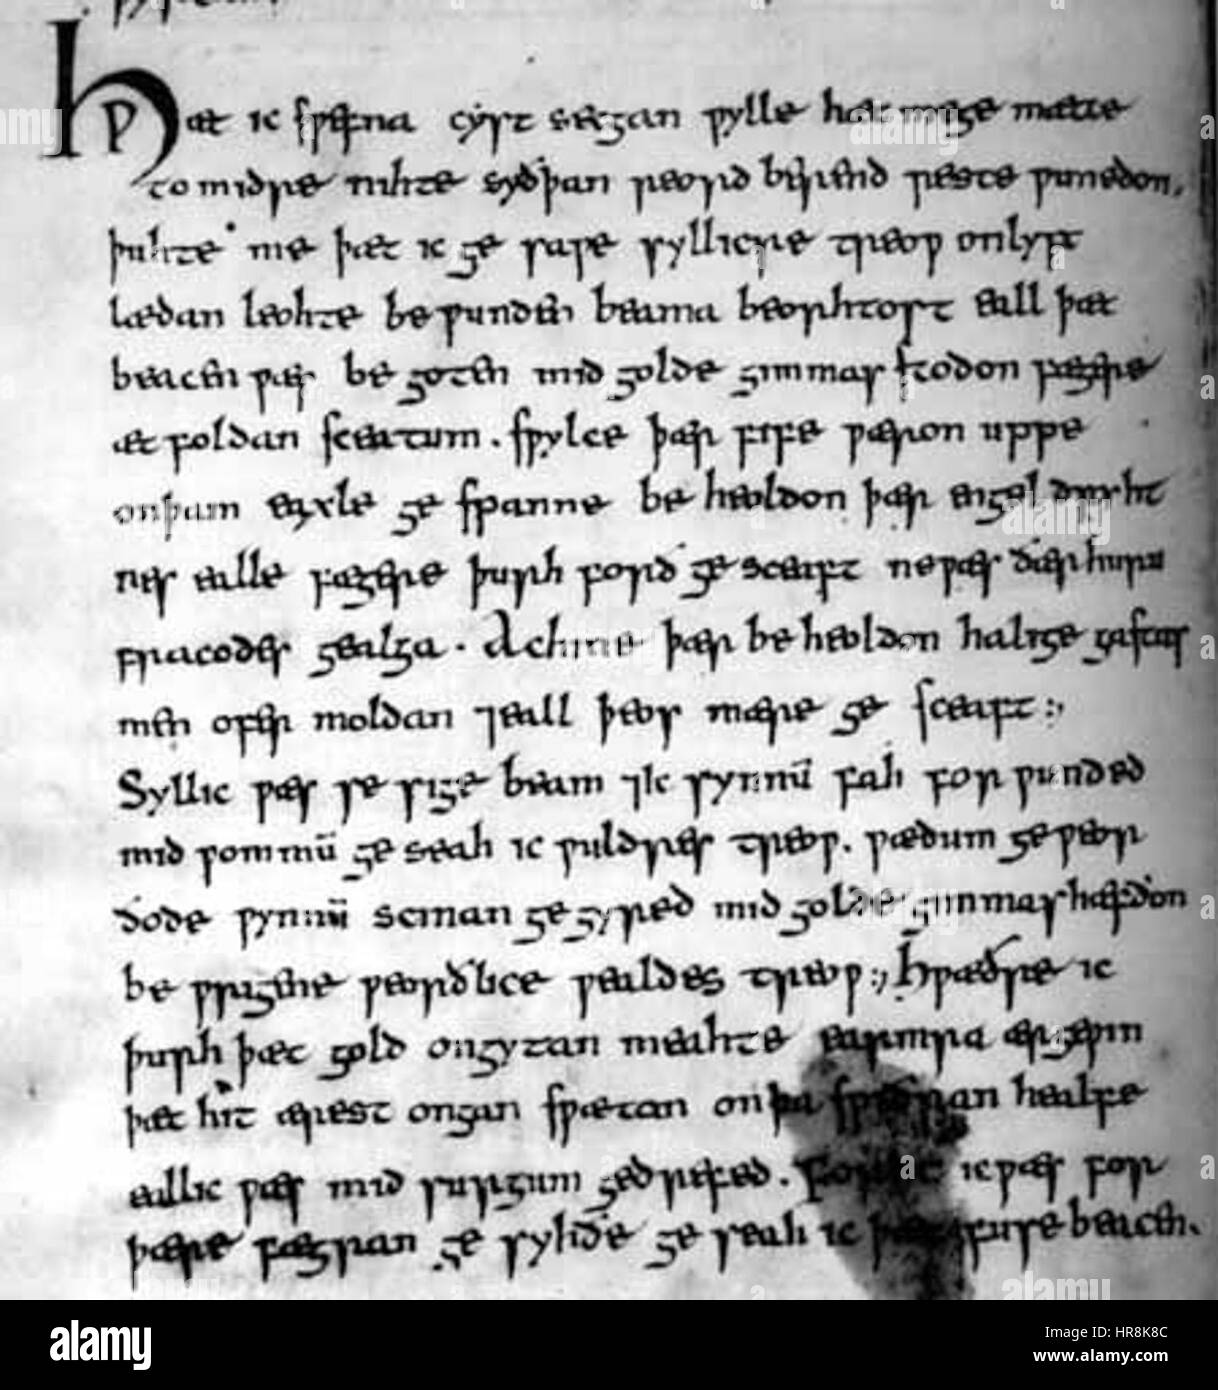 Hƿæt ic sƿefna cyst secgan ƿylle hæt mege mætte
to midre nihte syðþan reord berend reste ƿunedon.
þuhte me þæt ic ge saƿe syllicre treoƿ onlyft
lædan leohte be ƿunden beama beorhtost eall þæt
beacen ƿæs be goten mid golde gimmas stodon fægere
æt foldan sceatum. sƿylce þær fife ƿæron uppe
onþam eaxle ge spanne be heoldon þær engel dryht
nes ealle fægere þurh forð ge sceaft ne ƿæs ðær huru
fracodes gealga. Achine þær be heoldon halige gastas
men ofer moldan ⁊eall þeos mære ge sceaft:,
Syllic ƿæs se sige beam ⁊ic synnū fah for ƿunded
mid ƿommū ge seah ic ƿuldres treoƿ. ƿædum ge ƿeor
ðode ƿynnū scinan ge gyred mid golde gimmas hæfdon
be ƿrigene ƿeorðlice ƿealdes treoƿ:, Hƿæðre ic
þurh þæt gold ongytan meahte earmra ærgeƿin
þæt hit ærest ongan sƿætan onþa sƿiðran healfe
eall ic ƿæs mid surgum gedrefed. forht ic ƿæs for
þære fægran ge syhðe ge seah ic þæt fuse beacen.
alamy
Image ID: HR8K8C
www.alamy.com